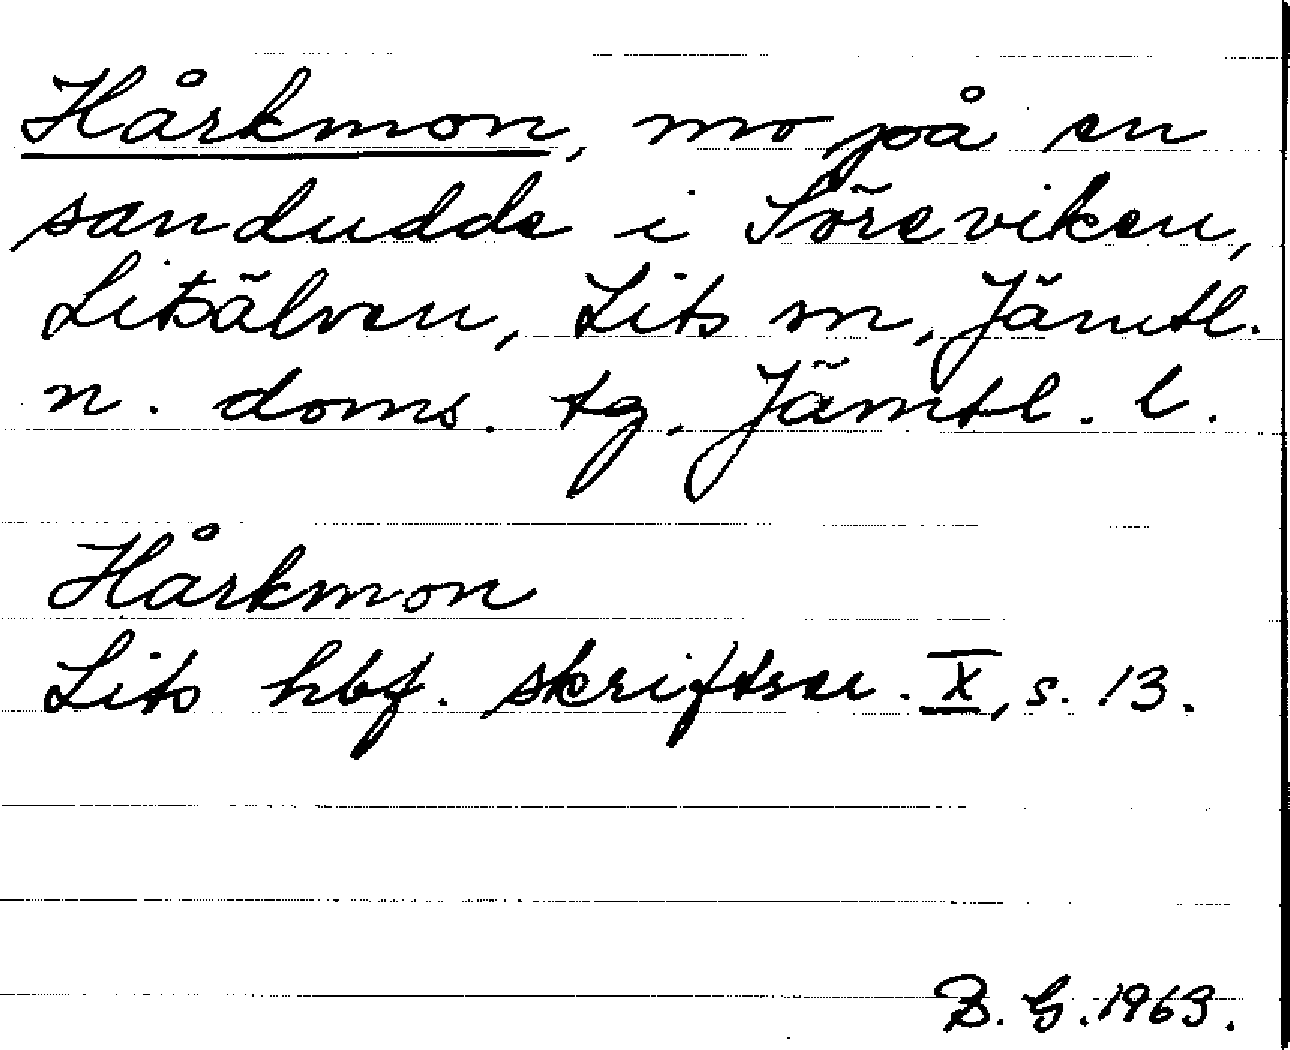 Hårkmon, mo på en
sandudde i Söreviken,
Litsälven, Lits sn, Jämtl.
n. doms. tg. Jämtl. l.
Hårkmon
Lits hbf. skriftser. X, s. 13.
B. G. 1963.